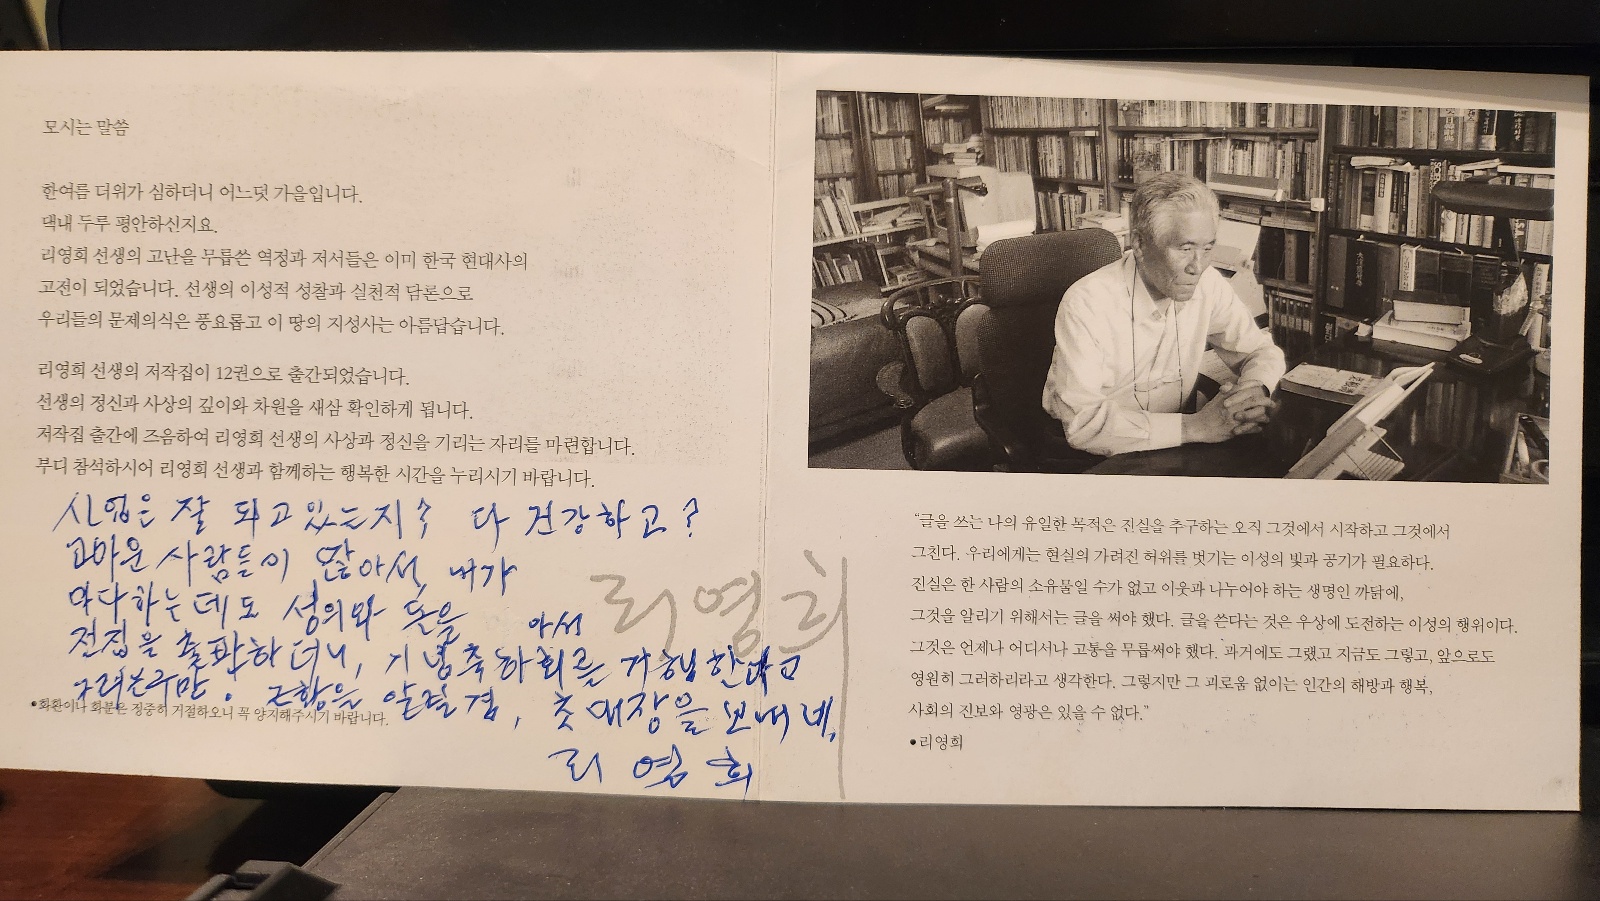 모시는 말씀
한여름 더위가 심하더니 어느덧 가을입니다.
댁내 두루 평안하신지요.
리영희 선생의 고난을 무릅쓴 역정과 저서들은 이미 한국 현대사의
고전이 되었습니다. 선생의 이성적 성찰과 실천적 담론으로
우리들의 문제의식은 풍요롭고 이 땅의 지성사는 아름답습니다.
리영희 선생의 저작집이 12권으로 출간되었습니다.
선생의 정신과 사상의 깊이와 차원을 새삼 확인하게 됩니다.
저작집 출간에 즈음하여 리영희 선생의 사상과 정신을 기리는 자리를 마련합니다.
부디 참석하시어 리영희 선생과 함께하는 행복한 시간을 누리시기 바랍니다.
사업은 잘 되고 있는지? 다 건강하고?
고마운 사람들이 많아서, 내가
마다하는데도 성의와 돈을
모아서
전집을 출판하더니, 기념축하회를 거행한다고
그러는구만. 근황을 알릴 겸, 초대장을 보내네,
리영희
•화환이나 화분은 정중히 거절하오니 꼭 양지해주시기 바랍니다.
리영희
“글을 쓰는 나의 유일한 목적은 진실을 추구하는 오직 그것에서 시작하고 그것에서
그친다. 우리에게는 현실의 가려진 허위를 벗기는 이성의 빛과 공기가 필요하다.
진실은 한 사람의 소유물일 수가 없고 이웃과 나누어야 하는 생명인 까닭에,
그것을 알리기 위해서는 글을 써야 했다. 글을 쓴다는 것은 우상에 도전하는 이성의 행위이다.
그것은 언제나 어디서나 고통을 무릅써야 했다. 과거에도 그랬고 지금도 그렇고, 앞으로도
영원히 그러하리라고 생각한다. 그렇지만 그 괴로움 없이는 인간의 해방과 행복,
사회의 진보와 영광은 있을 수 없다.”
•리영희